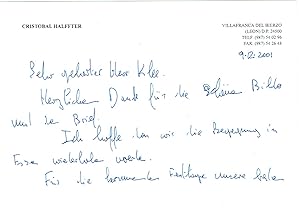 CRISTOBAL HALFFTER
VILLAFRANCA DEL BIERZO
(LEON) D.P. 24500
TELF. (987) 54 02 96
FAX. (987) 54 26 43
9.12.2001
Sehr geehrter Herr Klee.
Herzlichen Dank für die schöne Bilder
und den Brief.
Ich hoffe das wir die Begegnung in
Essen wiederholen werde.
Für die kommenden Festtage unsere